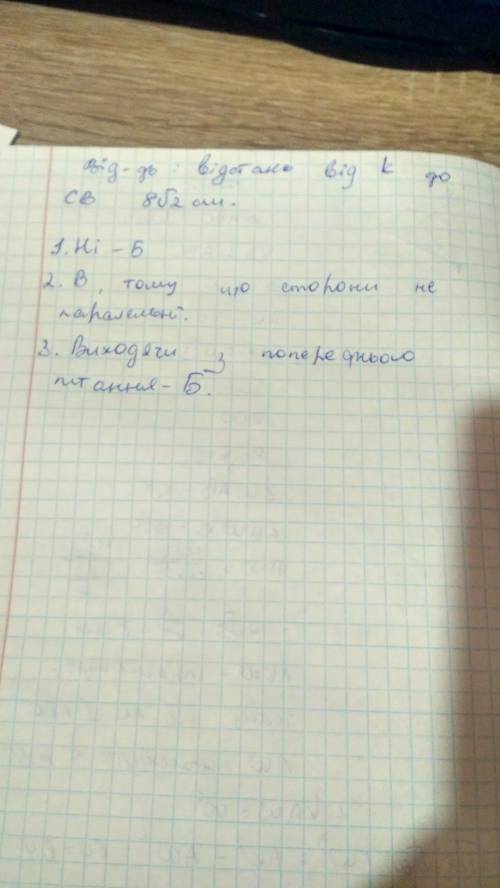 Від-дь: відстань від k до
СВ 8√2 см.
1. Ні – Б
2. В, тому що сторони не
паралельні.
3. Виходячи з попереднього
питання – Б.